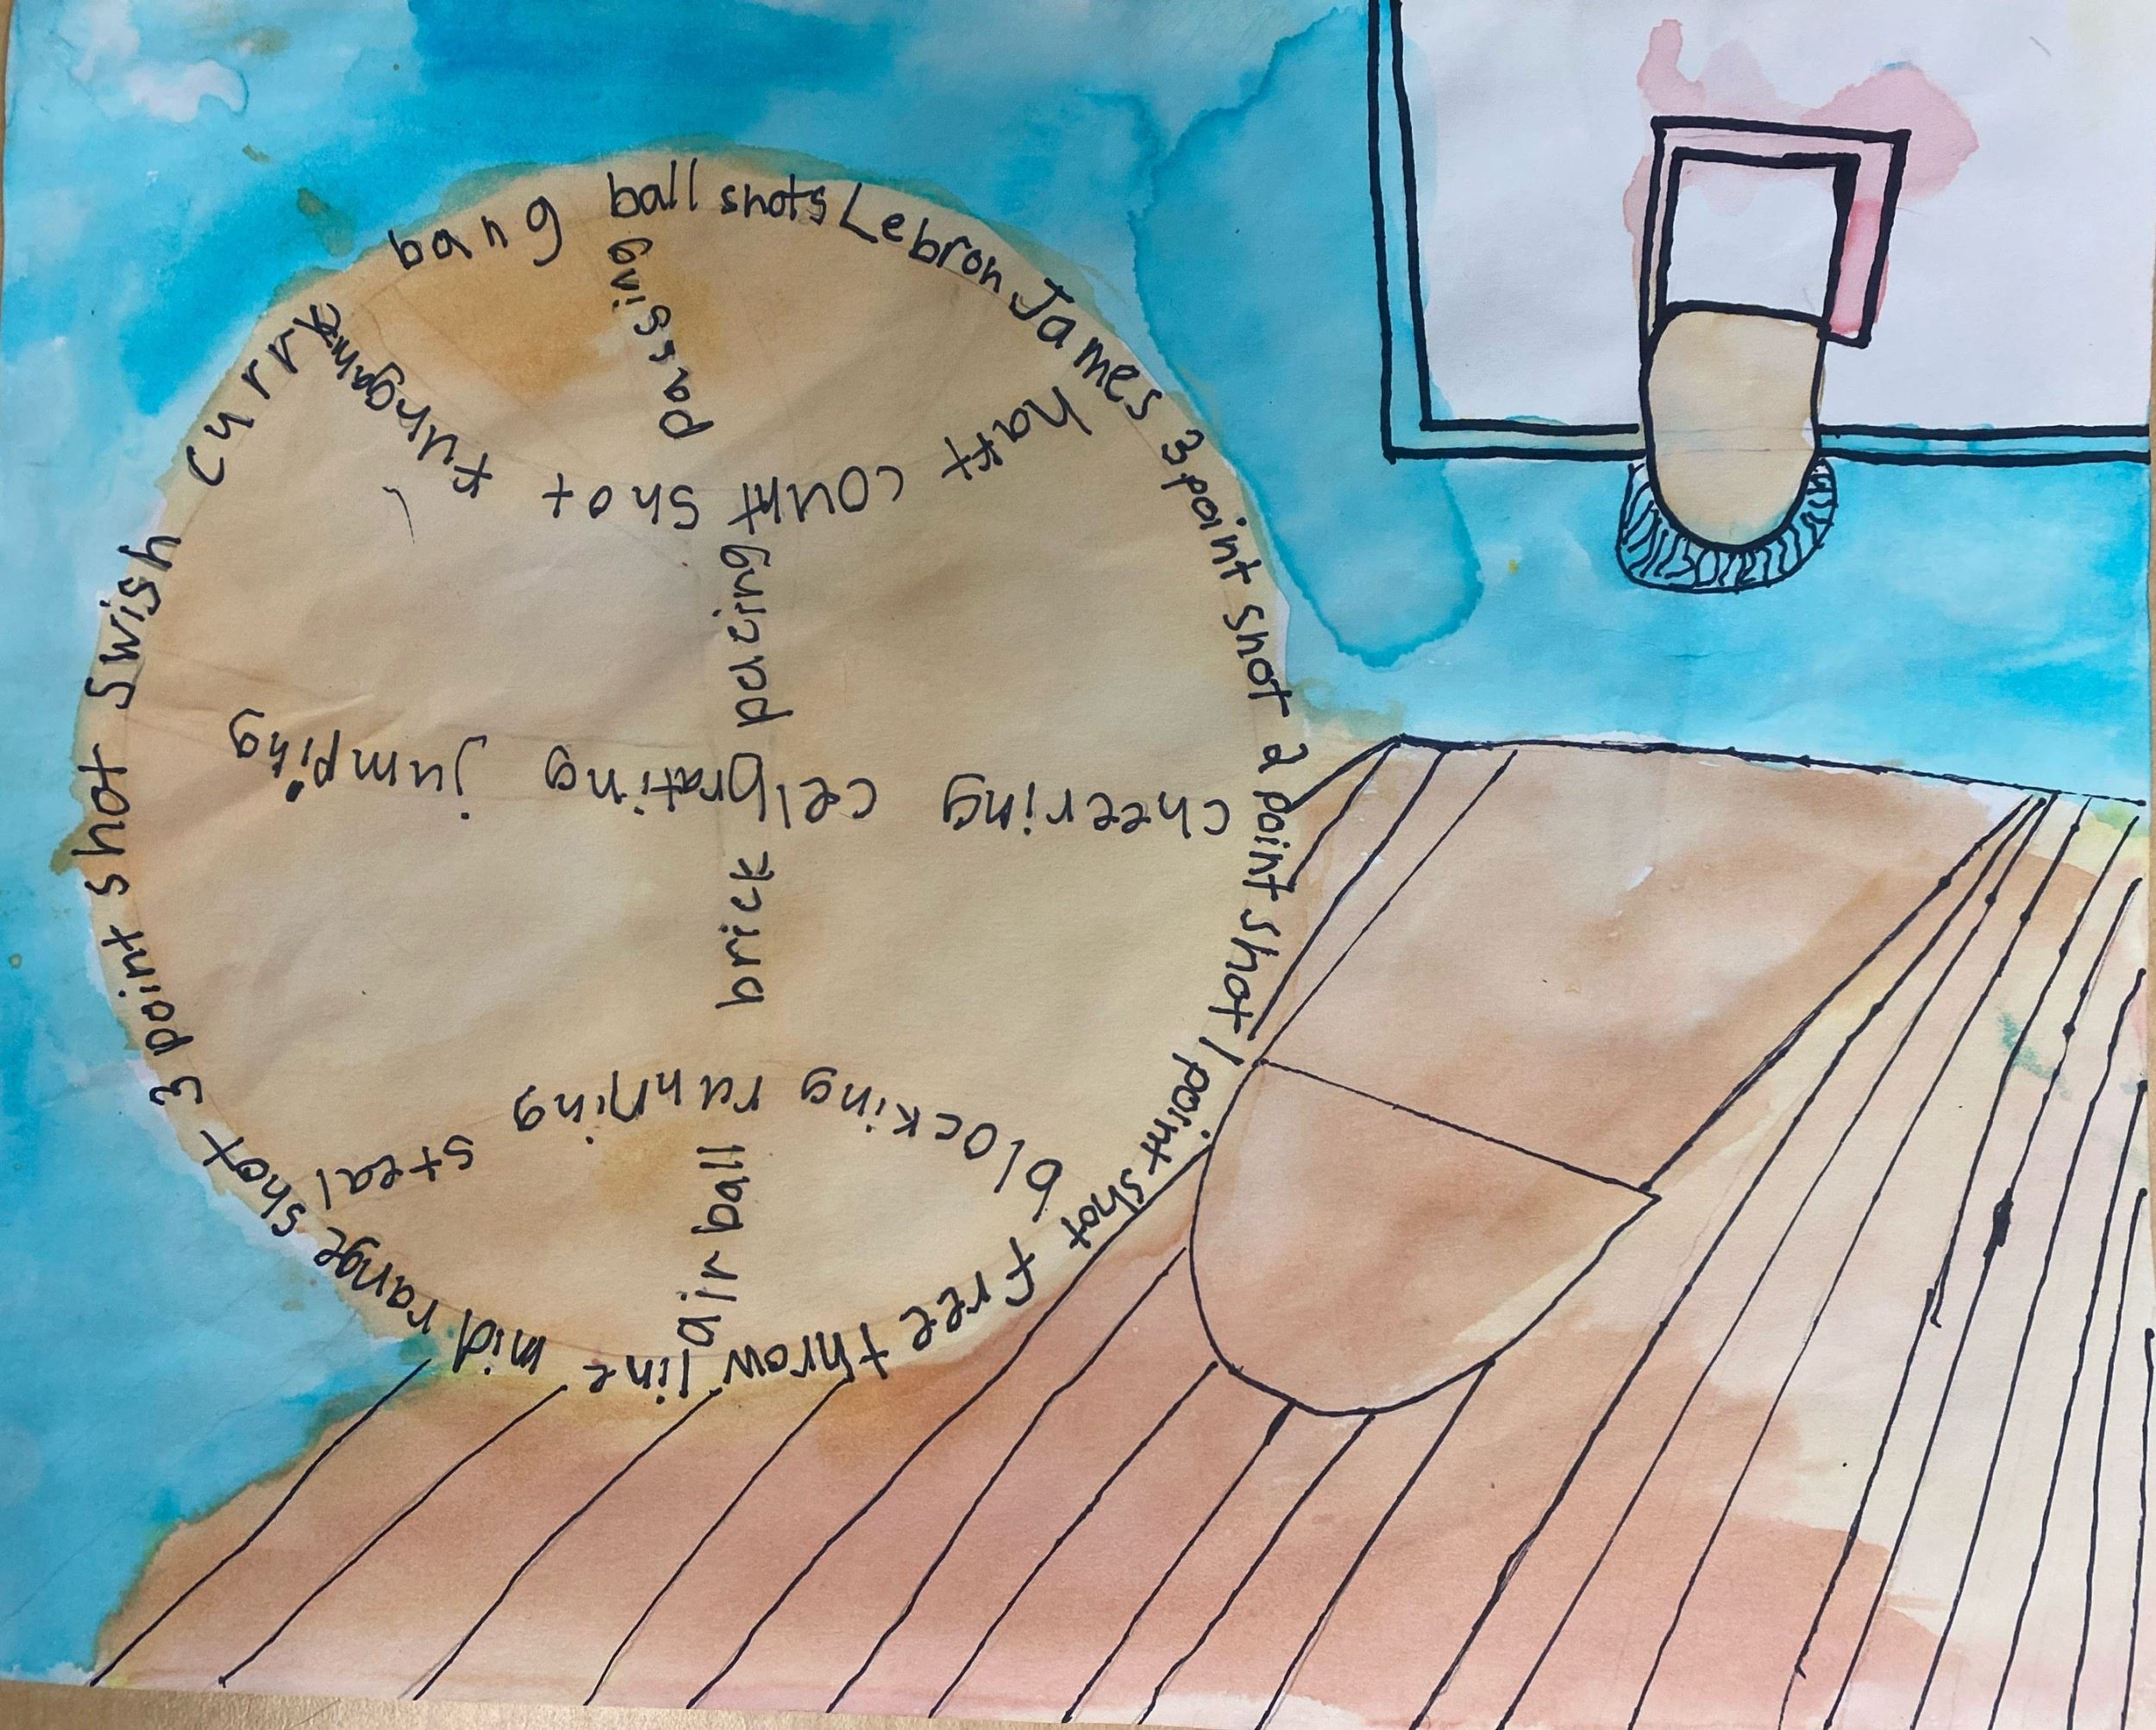 bang ball shots Lebron James 3 point shot 2 point shot 1 point shot free throw line mid range shot 3 point shot swish curry
passing pacing brick air ball
half court shot
cheering celbrating jumping
blocking running steal